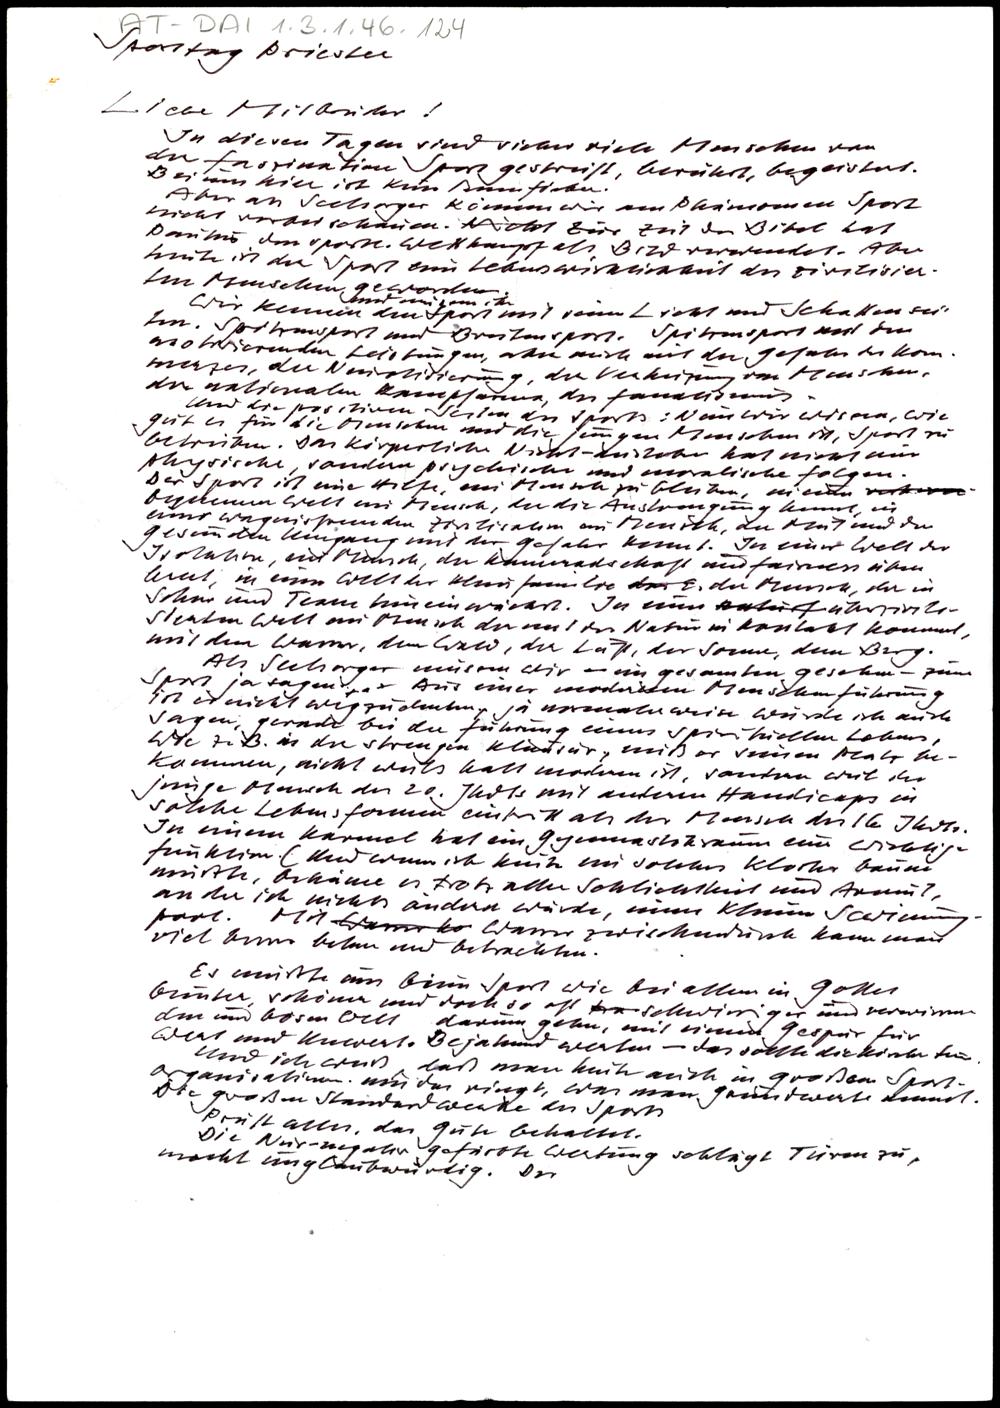 AT-DAI 1.3.1.46.124
Sporttag Priester
Liebe Mitbrüder!
In diesen Tagen sind sicher viele Menschen von
der Faszination Sport gestreift, berührt, begeistert.
Bei uns hier ist kein
Aber als Seelsorger können wir am Phänomen Sport
nicht vorbeischauen. Zur Zeit der Bibel hat
Paulus den sportl. Wettkampf als Bild verwendet. Aber
heute ist der Sport eine Lebenswirklichkeit des zivilisier-
ten Menschen geworden.
Wir kennen den Sport mit seinen Licht und Schattensei-
ten. Spitzensport und Breitensport. Spitzensport mit den
motivierenden Leistungen, aber auch mit der Gefahr des Kom-
merzes, der Neurotisierung, der Verheizung von Menschen,
der nationalen Kampfarena, des Fanatismus.
Und die positiven Seiten des Sports: Nun wir wissen, wie
gut es für die Menschen und die jungen Menschen ist, Sport zu
betreiben. Das körperliche Nicht-austoben hat nicht nur
physische, sondern psychische und moralische Folgen.
Der Sport ist eine Hilfe, ein Mensch zu bleiben, in einer
bequemen Welt ein Mensch, der die Anstrengung kennt, in
einer wagnisfremden Zivilisation ein Mensch, der Mut und den
gesunden Umgang mit der Gefahr kennt. In einer Welt der
Isolation, ein Mensch, der Kameradschaft und Fairness üben
lernt, in einer Welt der Kleinfamilie der Mensch, der in
Schar und Team hineinwächst. In einer überzivili-
sierten Welt ein Mensch der mit der Natur in Kontakt kommt,
mit dem Wasser, dem Wald, der Luft, der Sonne, dem Berg.
Als Seelsorger müssen wir – im gesamten gesehen – zum
Sport ja sagen. Aus einer modernen Menschenführung
ist er nicht wegzudenken, ja normalerweise würde ich auch
sagen, gerade bei der Führung eines spirituellen Lebens,
wie z.B. in der strengen Klausur, muß er seinen Platz be-
kommen, nicht weils halt modern ist, sondern weil der
junge Mensch des 20. Jhdts mit anderen Handicaps in
solche Lebensformen eintritt als der Mensch des 16 Jhdts.
In einem Karmel hat ein Gymnastikraum eine wichtige
Funktion (Und wenn ich heute ein solches Kloster bauen
müßte, bekäme es trotz aller Schlichtheit und Armut,
an der ich nichts ändern würde, einen kleinen Swimming-
pool. Mit Wasser zwischendurch kann man
viel besser beten und betrachten.
Es müßte uns beim Sport wie bei allem in Gottes
bunter, schöner und doch so oft schwieriger und verwirren-
den und bösen Welt darum gehn, mit einem Gespür für
Wert und Unwert. Bejahend werten – das sollte die Kirche tun.
Und ich weiß, daß man heute auch in großen Sport-
organisationen um das ringt, was man Grundwerte nennt.
Die großen Standardwerke des Sports
Prüft alles, das Gute behaltet.
Die Nur-negativ gefärbte Wertung schlägt Türen zu,
macht unglaubwürdig. Der